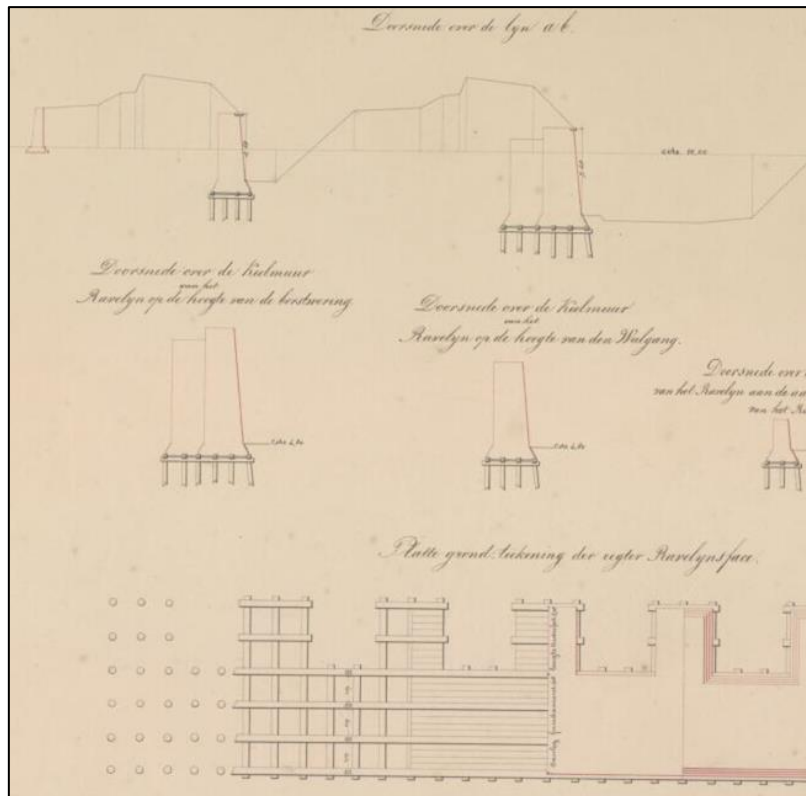 Doorsnede over de lyn a b.
Doorsnede over de Kielmuur
van het
Ravelyn op de hoogte van de borstwering
Doorsnede over de Kielmuur
van het
Ravelyn op de hoogte van den Walgang.
Doorsnede over
van het Ravelyn aan de
van het
Platte grond teekening der regter Ravelynsface.